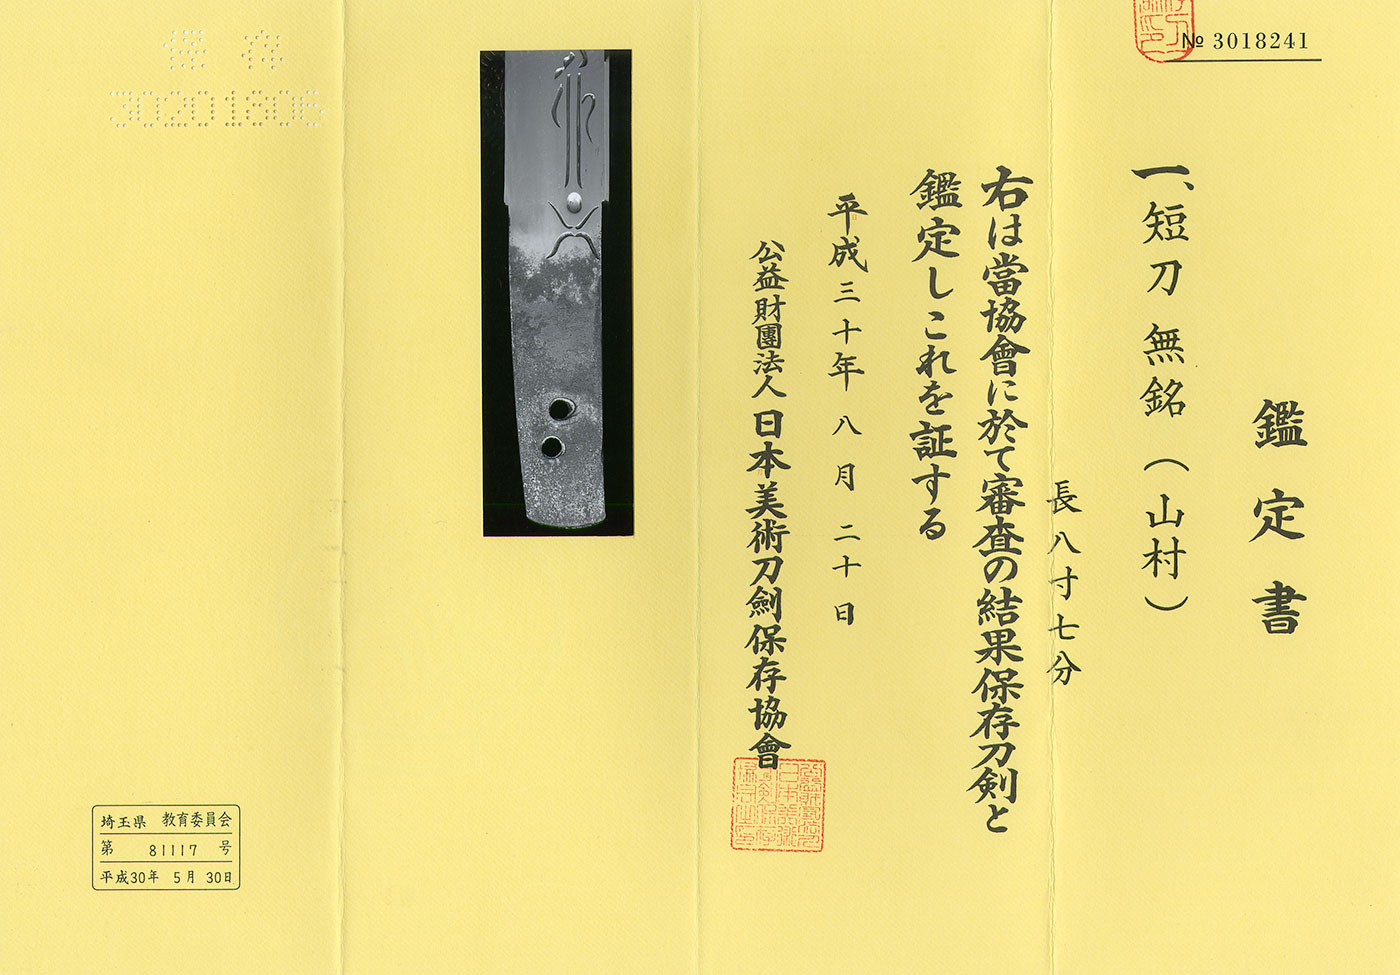 № 3018241
鑑定書
一、短刀 無銘（山村）
長八寸七分
右は當協會に於て審査の結果保存刀剣と
鑑定しこれを証する
平成三十年八月二十日
公益財團法人 日本美術刀劍保存協會
保存
30201806
埼玉県 教育委員会
第 81117 号
平成30年 5月 30日